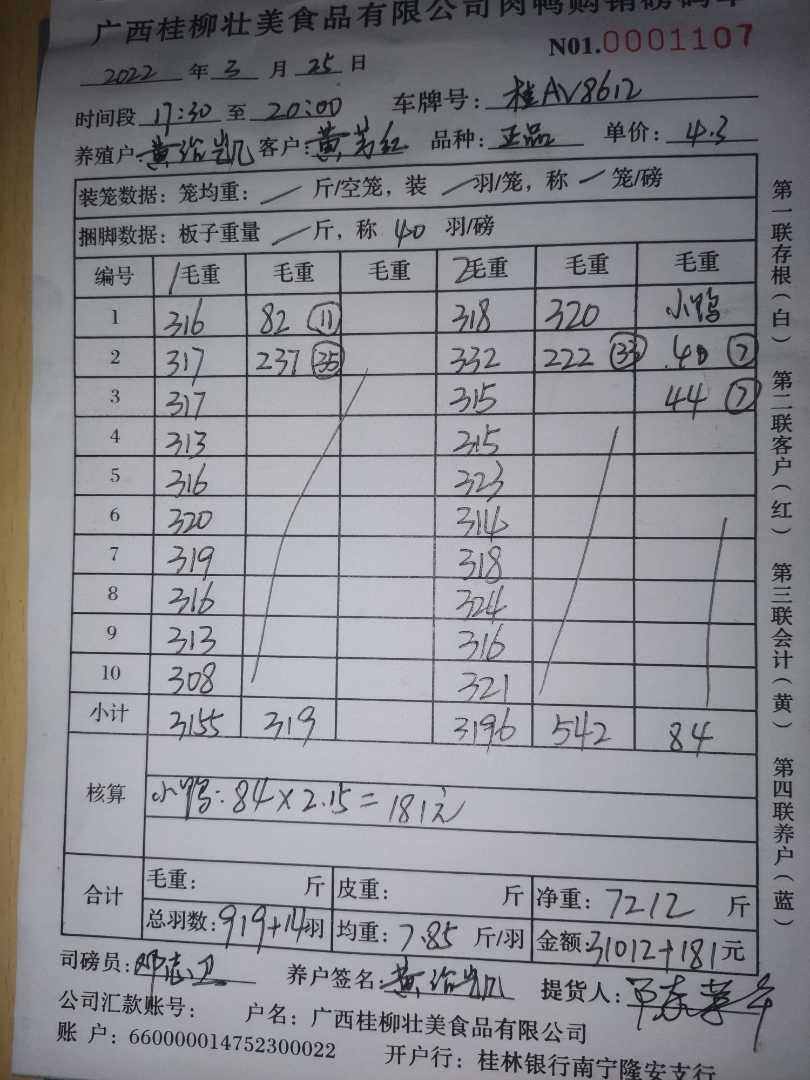 广西桂柳壮美食品有限公司肉鸭购销磅码单
N01.0001107
2022 年 3 月 25 日
时间段 17:30 至 20:00 车牌号: 桂AV8612
养殖户: 黄治凯 客户: 黄芳红 品种: 正品 单价: 4.3
装笼数据: 笼均重: / 斤/空笼, 装 / 羽/笼, 称 / 笼/磅
捆脚数据: 板子重量 / 斤, 称 40 羽/磅
编号 1毛重 毛重 毛重 2毛重 毛重 毛重
1 316 82 (11) 318 320 小鸭
2 317 237 (35) 332 222 (33) 40 (7)
3 317 315 44 (7)
4 313 315
5 316 323
6 320 314
7 319 318
8 316 324
9 313 316
10 308 321
小计 3155 319 3196 542 84
核算 小鸭: 84×2.15=181元
合计 毛重: 斤 皮重: 斤 净重: 7212 斤
总羽数: 919+14羽 均重: 7.85 斤/羽 金额 31012+181元
司磅员: 邓志卫 养户签名: 黄治凯 提货人:
公司汇款账号: 户名: 广西桂柳壮美食品有限公司
账 户: 660000014752300022 开户行: 桂林银行南宁隆安支行
第一联存根(白) 第二联客户(红) 第三联会计(黄) 第四联养户(蓝)